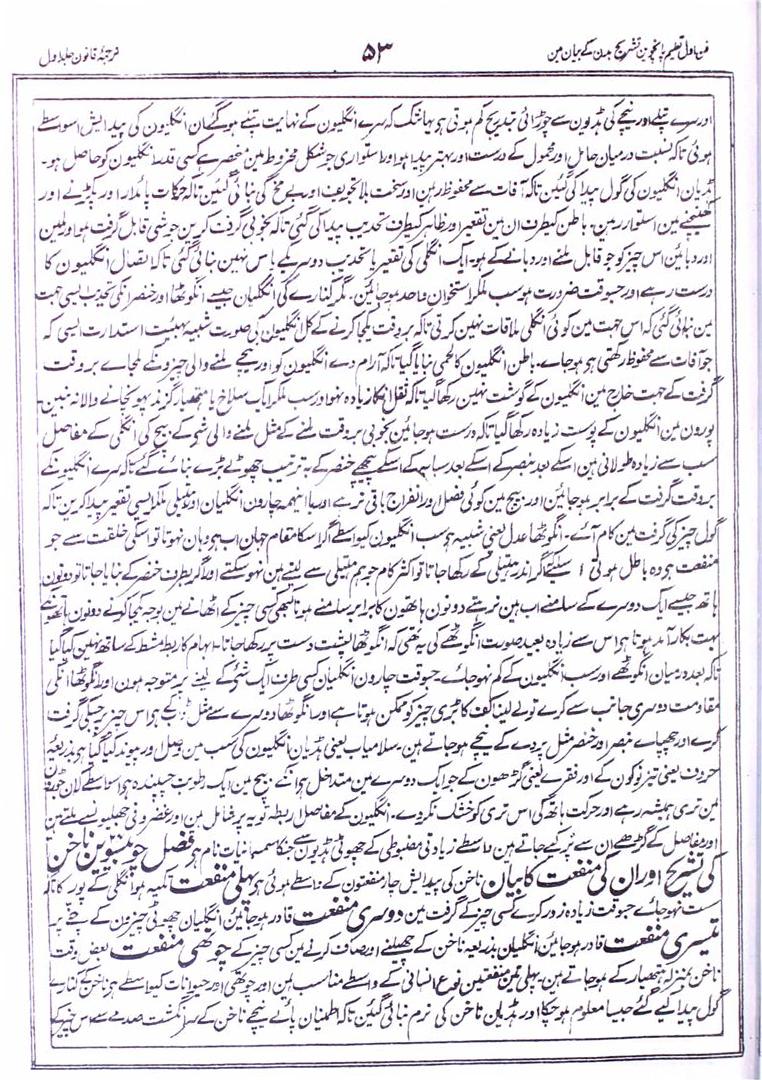 فن اول تعلیم پانچوین تشریح بدن کے بیان مین
۵۳
ترجمۂ قانون جلد اول
اور سرے پتلے اور نیچے کی ہڈیون سے چوڑائی بتدریج کم ہوتی ہی یہانتک کہ سرے انگلیون کے نہایت پتلے ہوگئے ان انگلیون کی پیدایش اسواسطے
ہوئی تاکہ نسبت درمیان حامل اور محمول کے درست اور بہتر پیدا ہو اور استواری جو شکل مخروط مین منحصر ہے کسی قدر انگلیون کو حاصل ہو۔
ہڈیان انگلیون کی گول پیدا کی گئین تاکہ آفات سے محفوظ رہین اور سخت بلا تجویف اور بے مخ کی بنائی گئین تاکہ حرکات پائدار اور پکڑنے اور
کھینچنے مین استوار رہین۔ باطن کیطرف ان مین تقعیر اور ظاہر کیطرف تحدیب پیدا کی گئی تاکہ بخوبی گرفت کرین جو شی قابل گرفت ہو اور ملین
اور دبائین اس چیز کو جو قابل ملنے اور دبانے کے ہو۔ ایک انگلی کی تقعیر یا تحدیب دوسرے کے پاس نہین بنائی گئی تاکہ اتصال انگلیون کا
درست رہے اور جسوقت ضرورت ہو سب ملکر استخوان واحد ہوجائین۔ مگر کنارے کی انگلیان جیسے انگوٹھا اور خنصر انکی تحدیب ایسی جہت
مین بنائی گئی کہ اس جہت مین کوئی انگلی ملاقات نہین کرتی تاکہ بروقت یکجا کرنے کے کل انگلیون کی صورت شبیہ بہیئت استدارت ایسی کہ
جو آفات سے محفوظ رکھتی ہی ہوجاے۔ باطن انگلیون کا لحمی بنایا گیا تاکہ آرام دے انگلیون کو اور نیچے ملنے والی چیزونکے لجاے بروقت
گرفت کے جہت خارج مین انگلیون کے گوشت نہین رکھا گیا تاکہ ثقل انکا زیادہ نہو اور سب ملکر ایک سلاح یا ہتھیار گزند پہونچانے والا نہ بنین۔
پورون مین انگلیون کے پوست زیادہ رکھا گیا تاکہ درست ہوجائین بخوبی بروقت ملنے کے مثل ملنے والی شی کے بیچ کی انگلی کے مفاصل
سب سے زیادہ طولانی ہین اسکے بعد بنصر کے اسکے بعد سبابہ کے اسکے پیچھے خنصر کے بہ ترتیب چھوٹے بڑے بنائے گئے تاکہ سرے انگلیونکے
بروقت گرفت کے برابر ہوجائین اور بیچ مین کوئی فصل اور انفراج باقی نرہے اور باینہمہ چارون انگلیان اور ہتیلی ملکر ایسی تقعیر پیدا کرین تاکہ
گول چیز کی گرفت مین کام آئے۔ انگوٹھا عدل یعنی شبیہ ہی سب انگلیون کیواسطے اگر اسکا مقام جہان اب ہی وہان نہوتا تو اسکی خلقت سے جو
منفعت ہی وہ باطل ہوتی اسلیے کہ اگر اندر ہتیلی کے رکھا جاتا تو اکثر کام جو ہم ہتیلی سے لیتے ہین نہوسکتے اور اگر بطرف خنصر کے بنایا جاتا تو دونون
ہاتھ جیسے ایک دوسرے کے سامنے اب ہین نرہتے دونون ہاتھون کا برابر سامنے ہونا کبھی کسی چیز کے اٹھانے مین بوجہ یکجا ہونے دونون ہاتھونکے
بہت بکار آمد ہوتا ہی اس سے زیادہ بعید صورت انگوٹھے کی یہ تھی کہ انگوٹھا پشت دست پر رکھا جاتا۔ ابہام کا ربط مشط کے ساتھ نہین کیا گیا
تاکہ بعد درمیان انگوٹھے اور سب انگلیون کے کم نہوجائے۔ جسوقت چارون انگلیان کسی طرف ایک شی کے لینے پر متوجہ ہون اور انگوٹھا انکی
مقاومت دوسری جانب سے کرے تو لے لینا کف کا بڑی چیز کو ممکن ہوتا ہے اور انگوٹھا دوسرے سے مثل ڈٹے کے ہی اس چیز پر جسکی گرفت
کرے اور چھپائے بنصر اور خنصر مثل پردے کے نیچے ہوجاتے ہین۔ سلامیات یعنی ہڈیان انگلیون کی سب مین وصل اور پیوند کیا گیا ہی بذریعۂ
حروف یعنی تیز نوکون کے اور نقرے یعنی گڑھون کے جو ایک دوسرے مین متداخل ہی انکے بیچ مین ایک رطوبت چسپندہ ہی اسواسطے کہ ان جوڑون
مین تری ہمیشہ رہے اور حرکت ہاتھ کی اس تری کو خشک نکردے۔ انگلیون کے مفاصل اربطہ قویہ پر شامل ہین اور غضروفی جھلیونسے ملتے ہین
اور مفاصل کے گڑھے ان سے پُر کیے جاتے ہین واسطے زیادتی مضبوطی کے چھوٹی ہڈیون سے جنکا سمسمانیات نام ہی فصل چوبیسوین ناخن
کی تشریح اور ان کی منفعت کا بیان ناخن کی پیدایش چار منفعتون کے واسطے ہوئی ہی پہلی منفعت تکیہ ہو انگلی کے پور کا تاکہ
سست نہوجائے جسوقت زیادہ زور کرے کسی چیز کے گرفت مین دوسری منفعت قادر ہوجائین انگلیان چھوٹی چیزون کے چننے پر
تیسری منفعت قادر ہوجائین انگلیان بذریعہ ناخن کے چھیلنے اور صاف کرنے مین کسی چیز کے چوتھی منفعت بعض وقت
ناخن بمنزلہ ہتھیار کے ہوجاتے ہین۔ پہلی تین منفعتین نوع انسانی کے واسطے مناسب ہین اور چوتھی اور حیوانات کیواسطے ہی ناخن کے کنارے
گول پیدا کیے گئے جیسا معلوم ہوچکا اور ہڈیان ناخن کی نرم بنائی گئین تاکہ اطمنان پائے نیچے ناخن کے سر انگشت صدمے سے اس چیز کے